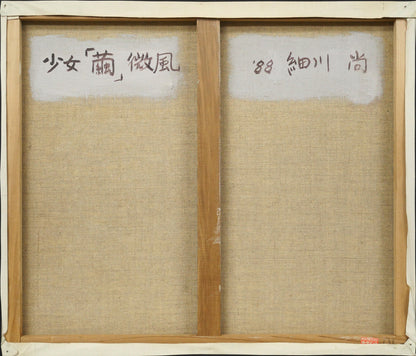 少女「繭」微風
'88 細川 尚